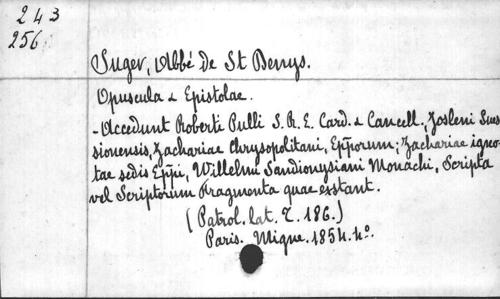 243
256
Suger, Abbé de St Denys.
Opuscula & Epistolae.
- Accedunt Roberti Pulli S. R. E. Card. & Cancell., Josleni Sues
sionensis, Zachariae Chrysopolitani, Epporum; Zachariae igno-
tae sedis Eppi, Willelmi Sandionysiani Monachi, Scripta
vel Scriptorum Fragmenta quae exstant.
(Patrol. lat. T. 186.)
Paris. Migne. 1854. 4º.